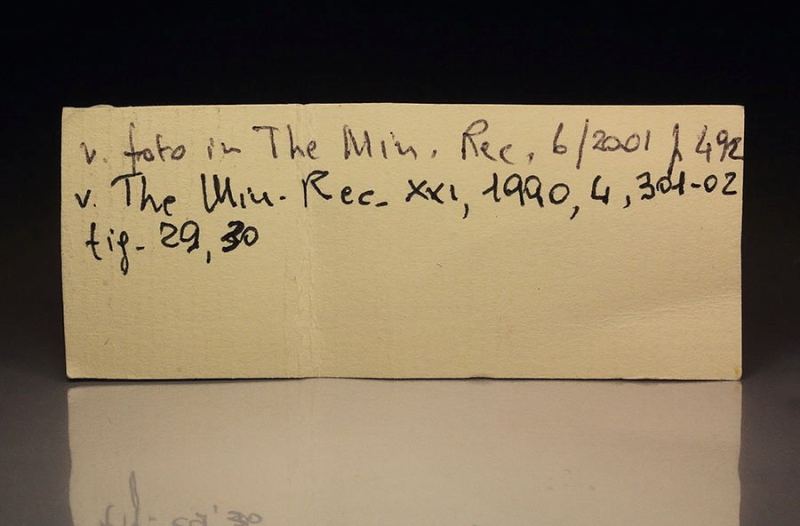 v. foto in The Min. Rec. 6/2001 p 492
v. The Min. Rec. XXI, 1990, 4, 301-02
fig. 29, 30